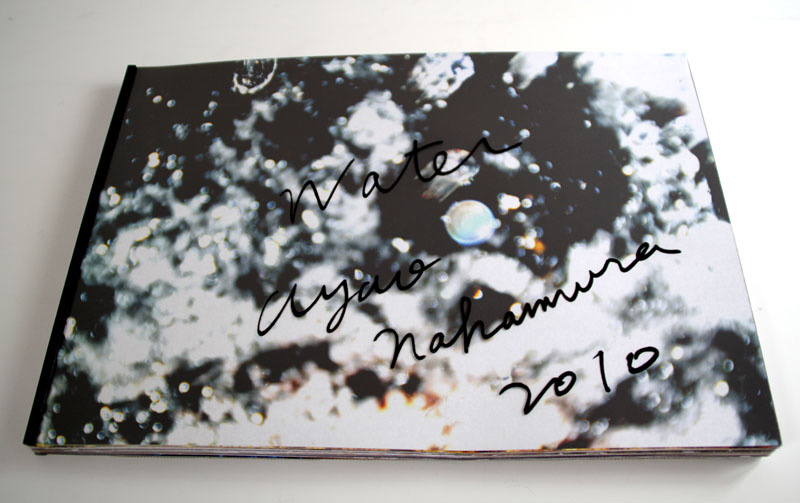 Water
Ayao
Nakamura
2010